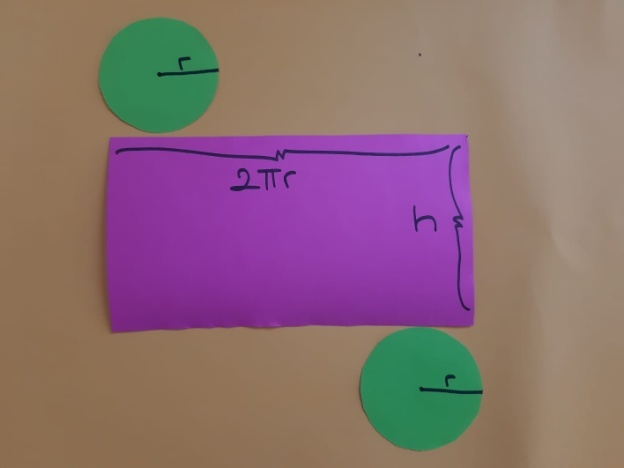 r
2πr
h
r